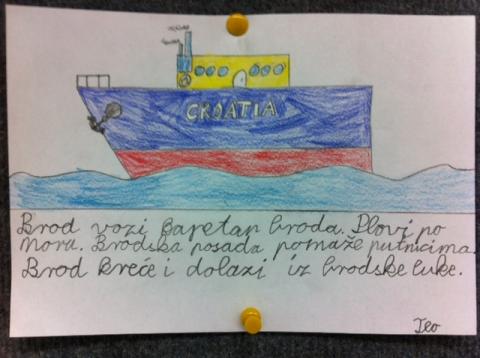 CROATIA
Brod vozi kapetan broda. Plovi po
moru. Brodska posada pomaže putnicima.
Brod kreće i dolazi iz brodske luke.
Teo